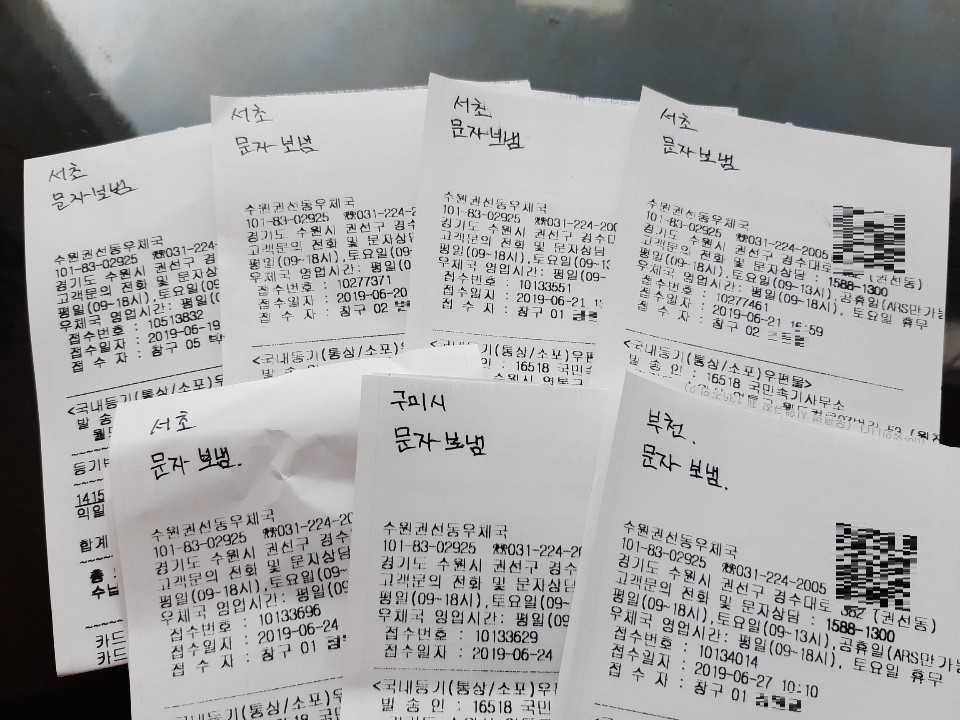 서초
문자보냄
수원권선동우체국
101-83-02925 ☎031-224-
경기도 수원시 권선구 경
고객문의 전화 및 문자상
평일(09~18시),토요일(09
우체국 영업시간: 평일(0
접수번호 : 10513832
접수일자 : 2019-06-19
접 수 자 : 창구 05
<국내등기(통상/소포)우
발 송
등기
1415
익일
합계
총
수납
카드
카드
서초
문자 보냄
수원권선동우체국
101-83-02925 ☎031-224-2
경기도 수원시 권선구 경수
고객문의 전화 및 문자상담
평일(09~18시),토요일(09~
우체국 영업시간: 평일(0
접수번호 : 10277371
접수일자 : 2019-06-20
접 수 자 : 창구 02
<국내등기(통상/소포)우
서초
문자보냄
수원권선동우체국
101-83-02925 ☎031-224-200
경기도 수원시 권선구 경수
고객문의 전화 및 문자상담
평일(09~18시),토요일(09~13
우체국 영업시간: 평일(09~
접수번호 : 10133551
접수일자 : 2019-06-21
접 수 자 : 창구 01
<국내등기(통상/소포)우편
발 송 인 : 16518 국민
수원시 영통구
서초
문자 보냄
수원권선동우체국
101-83-02925 ☎031-224-2005
경기도 수원시 권선구 경수대로 (권선동)
고객문의 전화 및 문자상담 : 1588-1300
평일(09~18시),토요일(09~13시),공휴일(ARS만가능
우체국 영업시간: 평일(09~18시), 토요일 휴무
접수번호 : 10277461
접수일자 : 2019-06-21 :59
접 수 자 : 창구 02
<국내등기(통상/소포)우편물>
발 송 인 : 16518 국민속기사무소
서초
문자 보냄.
수원권선동우체국
101-83-02925 ☎031-224-20
경기도 수원시 권선구 경수
고객문의 전화 및 문자상담
평일(09~18시),토요일(09~
우체국 영업시간: 평일(09
접수번호 : 10133696
접수일자 : 2019-06-24
접 수 자 : 창구 01
<국내등기(통상/소포)우편
발 송 인 : 16518
구미시
문자 보냄
수원권선동우체국
101-83-02925 ☎031-224-2
경기도 수원시 권선구 경수
고객문의 전화 및 문자상담
평일(09~18시),토요일(09~
우체국 영업시간: 평일(09
접수번호 : 10133629
접수일자 : 2019-06-24
<국내등기(통상/소포)우편
발 송 인 : 16518 국민
부천.
문자 보냄.
수원권선동우체국
101-83-02925 ☎031-224-2005
경기도 수원시 권선구 경수대로 362 (권선동)
고객문의 전화 및 문자상담 : 1588-1300
평일(09~18시),토요일(09~13시),공휴일(ARS만가능
우체국 영업시간: 평일(09~18시), 토요일 휴무
접수번호 : 10134014
접수일자 : 2019-06-27 10:10
접 수 자 : 창구 01